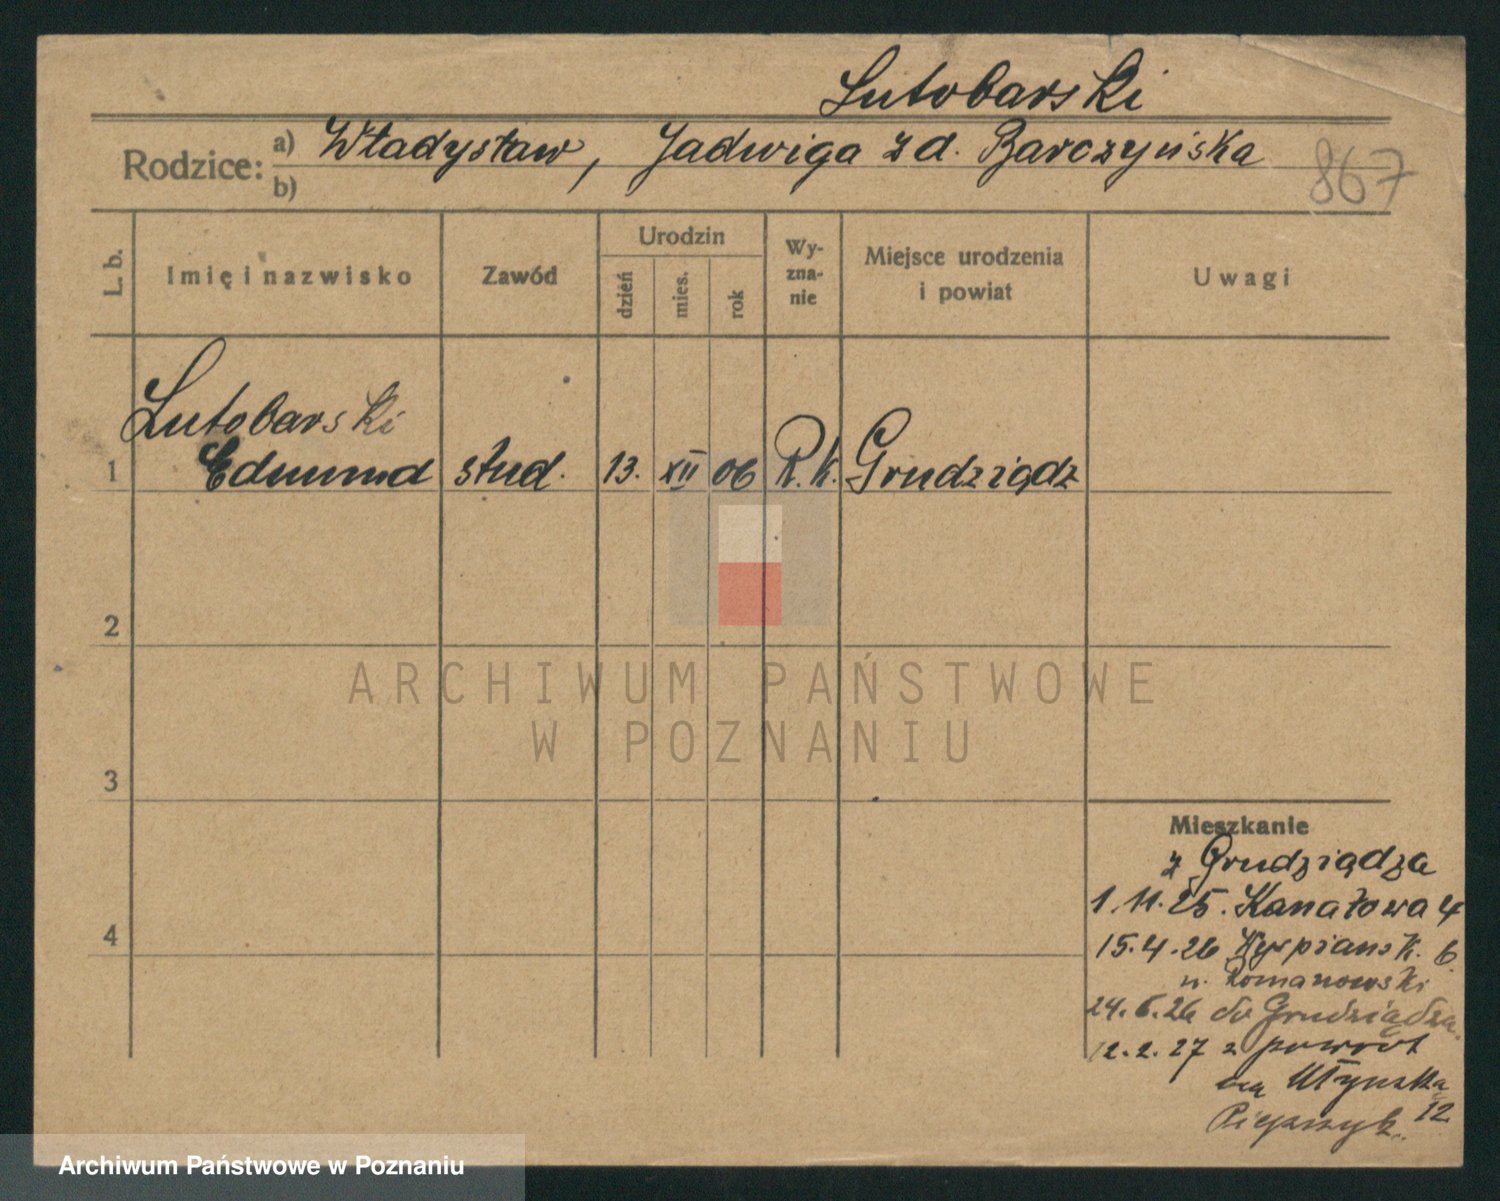 Lutobarski
Rodzice: a) Władysław, Jadwiga z d. Barczyńska
b)
867
L. b.
Imię i nazwisko
Zawód
Urodzin
dzień
mies.
rok
Wy-
zna-
nie
Miejsce urodzenia
i powiat
Uwagi
Lutobarski
1 Edmund stud. 13. XII 06 R.k. Grudziądz
2
ARCHIWUM PAŃSTWOWE
W POZNANIU
3
Mieszkanie
z Grudziądza
1.11.25. Kanałowa 4
4
15.4.26 Wyspiańsk. 6
n. Romanowski
24.6.26 do Grudziądza
12.2.27 z powrot
Młyńska
12
Archiwum Państwowe w Poznaniu